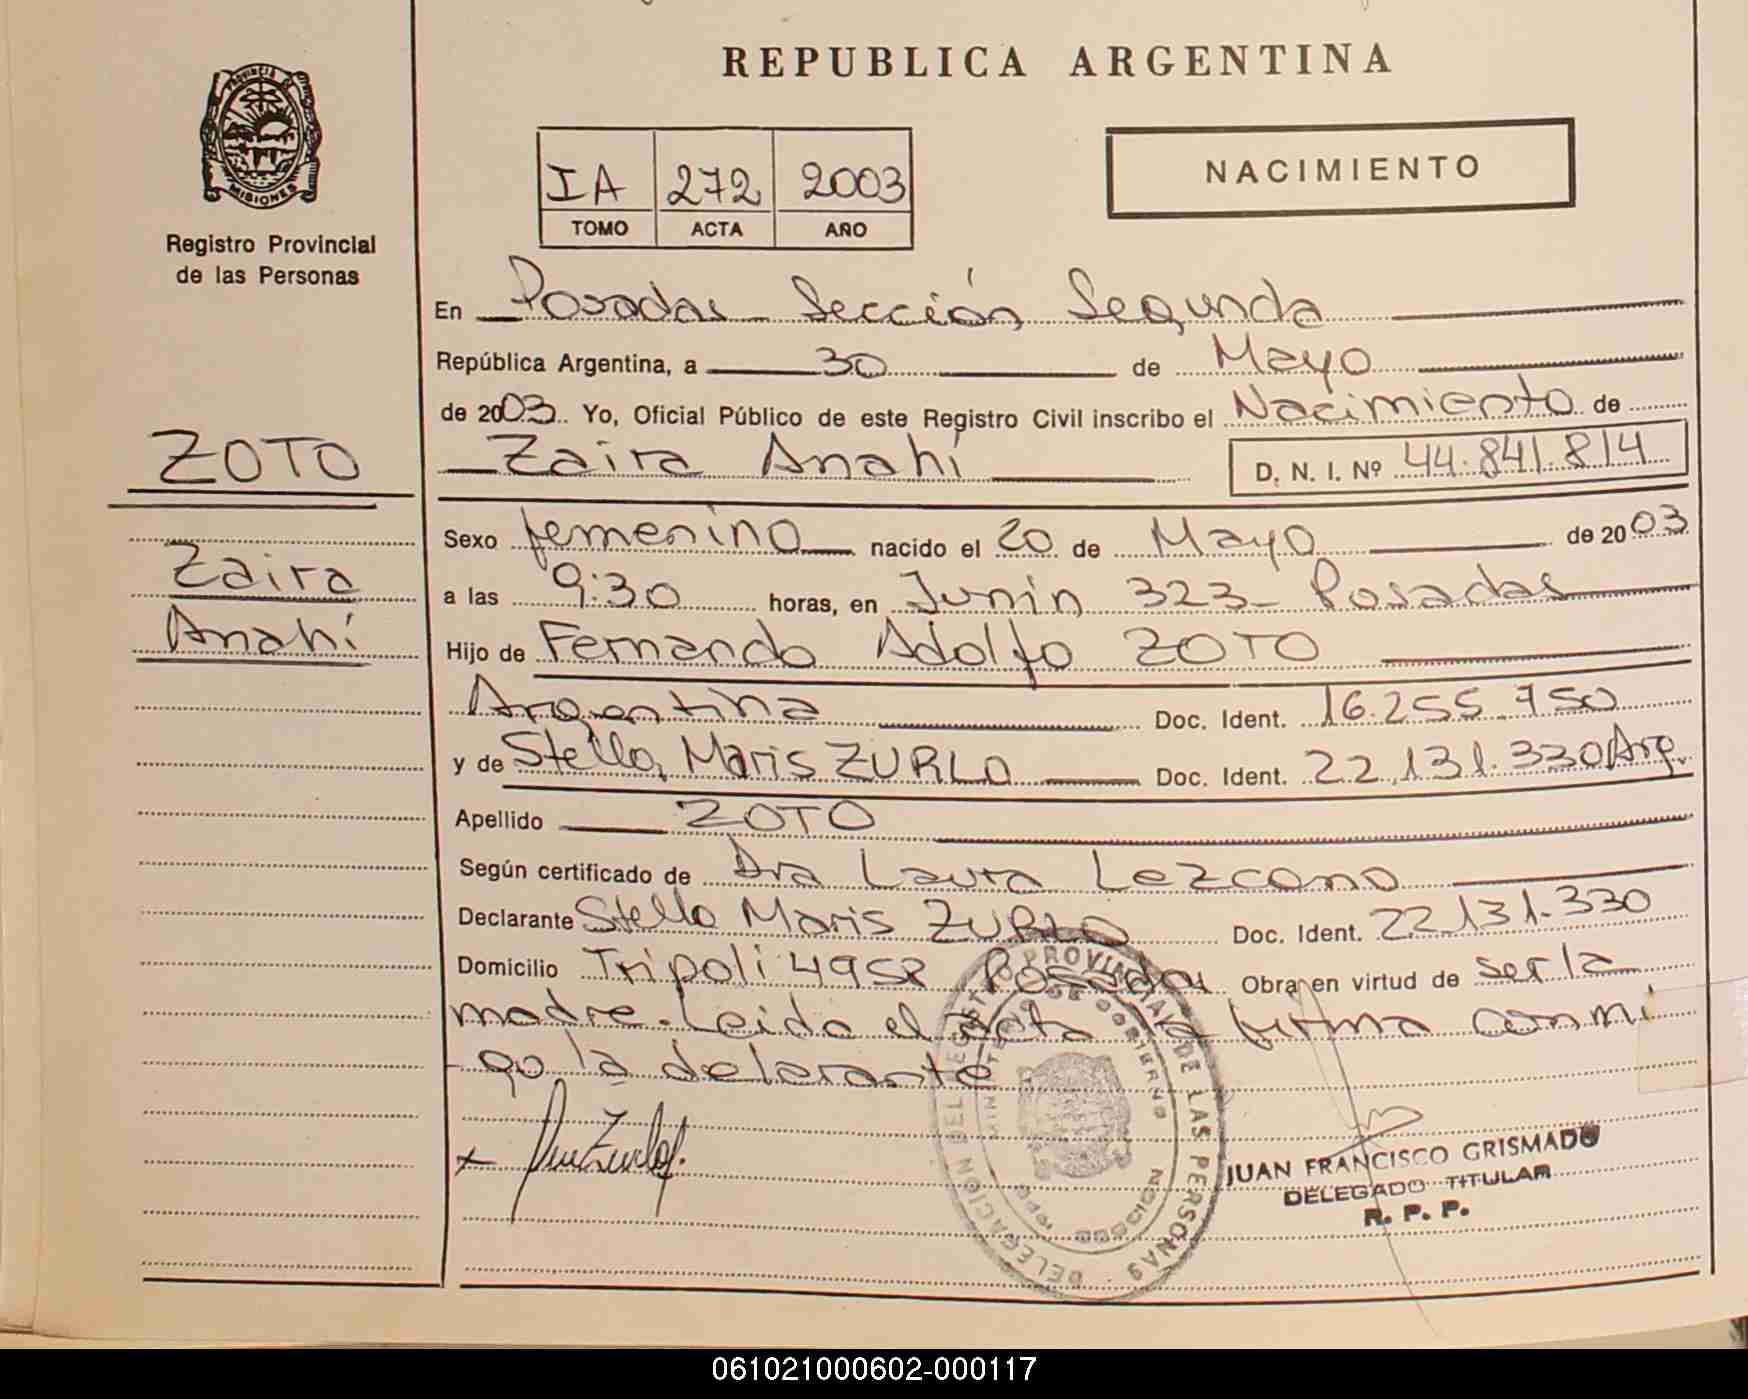 REPUBLICA ARGENTINA
PROVINCIA DE
MISIONES
Registro Provincial
de las Personas
IA 272 2003
TOMO ACTA AÑO
NACIMIENTO
En Posadas Sección Segunda
República Argentina, a 30 de Mayo
de 2003. Yo, Oficial Público de este Registro Civil inscribo el Nacimiento de
Zaira Anahí D. N. I. Nº 44.841.814
ZOTO
Zaira
Anahí
Sexo femenino nacido el 20 de Mayo de 2003
a las 9:30 horas, en Junin 323 - Posadas
Hijo de Fernando Adolfo ZOTO
Argentina Doc. Ident. 16.255.750
y de Stella Maris ZURLO Doc. Ident. 22.131.330 Arg.
Apellido ZOTO
Según certificado de Dra Laura Lezcano
Declarante Stella Maris ZURLO Doc. Ident. 22131.330
Domicilio Tripoli 4958 Posadas Obra en virtud de ser la
madre. Leida el Acta la firma conmi
go la delarante
JUAN FRANCISCO GRISMADO
DELEGADO TITULAR
R. P. P.
DELEGACION DEL REGIST PROVINCIAL DE LAS PERSONAS
MINISTERIO DE GOBIERNO
061021000602-000117